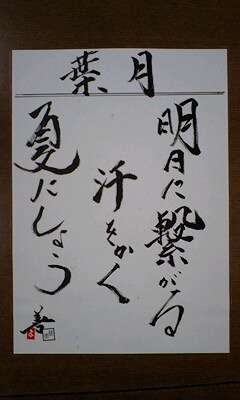 葉月
明日に繋がる
汗をかく
夏にしよう
善